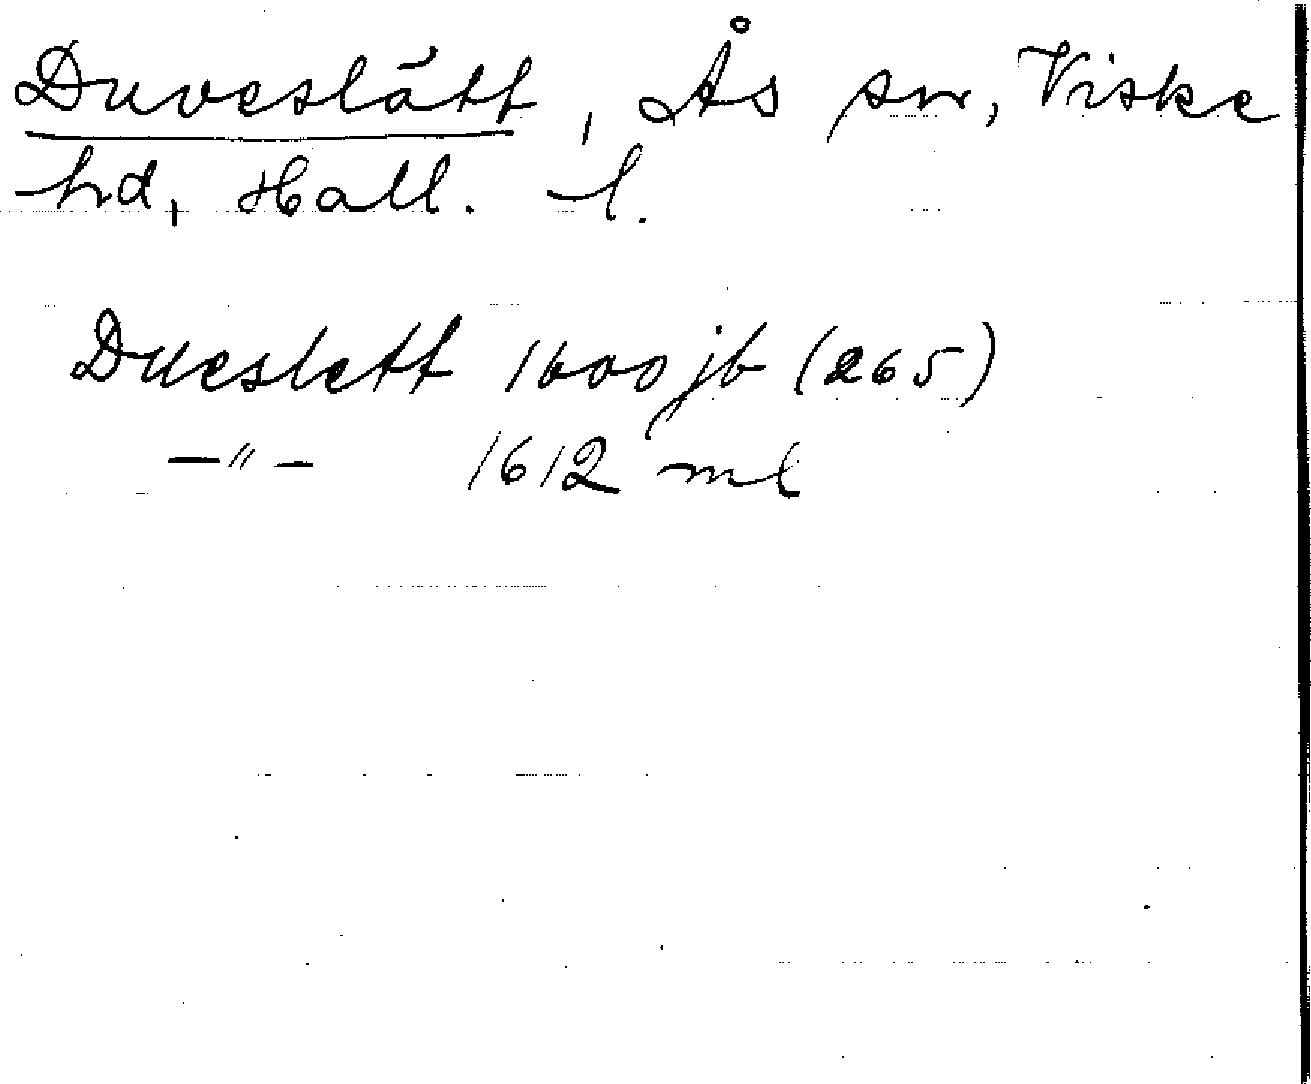 Duveslätt, Ås sn, Viske
hd, Hall. l.
Dueslett 1600 jb (265)
—"— 1612 ml